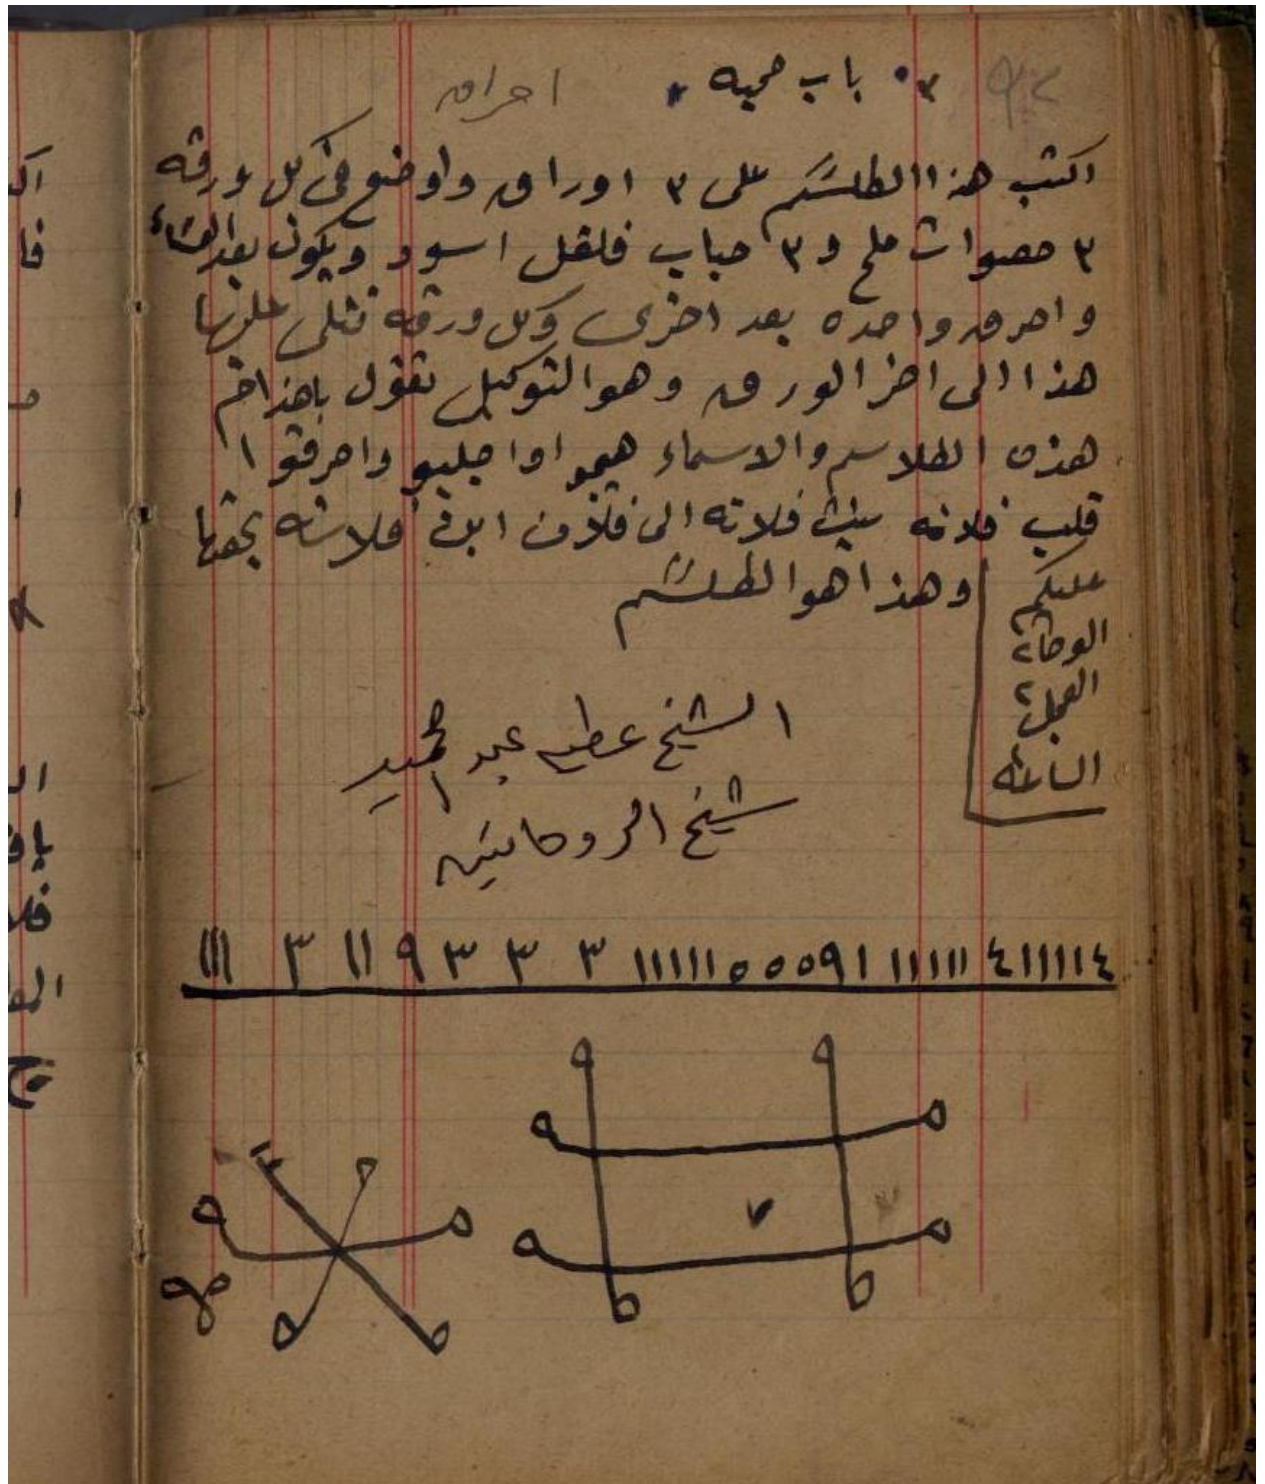 ٩٢ ٣٠ باب محبه احراق
اكتب هذا الطلسم على ٣ اوراق واوضع فى كل ورقه
٣ حصوات ملح و٣ حبات فلفل اسود ويكون بعد العشاء
واحرق واحده بعد اخرى وكل ورقه تتلى عليها
هذا الى اخر الورق وهو التوكيل تقول ياخدام
هذه الطلاسم والاسماء هيجوا واجلبو واحرقوا
قلب فلانه بنت فلانه الى فلان ابن فلانه بحقها
عليكم وهذا هو الطلسم
الوحا٢
العجل٢
الساعه
الشيخ عطيه عبد الحميد
شيخ الروحانيه
٤١١١١١٤ ١١١١١١ ١٩٥٥٥ ١١١١١١ ٣ ٣ ٣ ٩ ١١ ٣ ١١١
٧